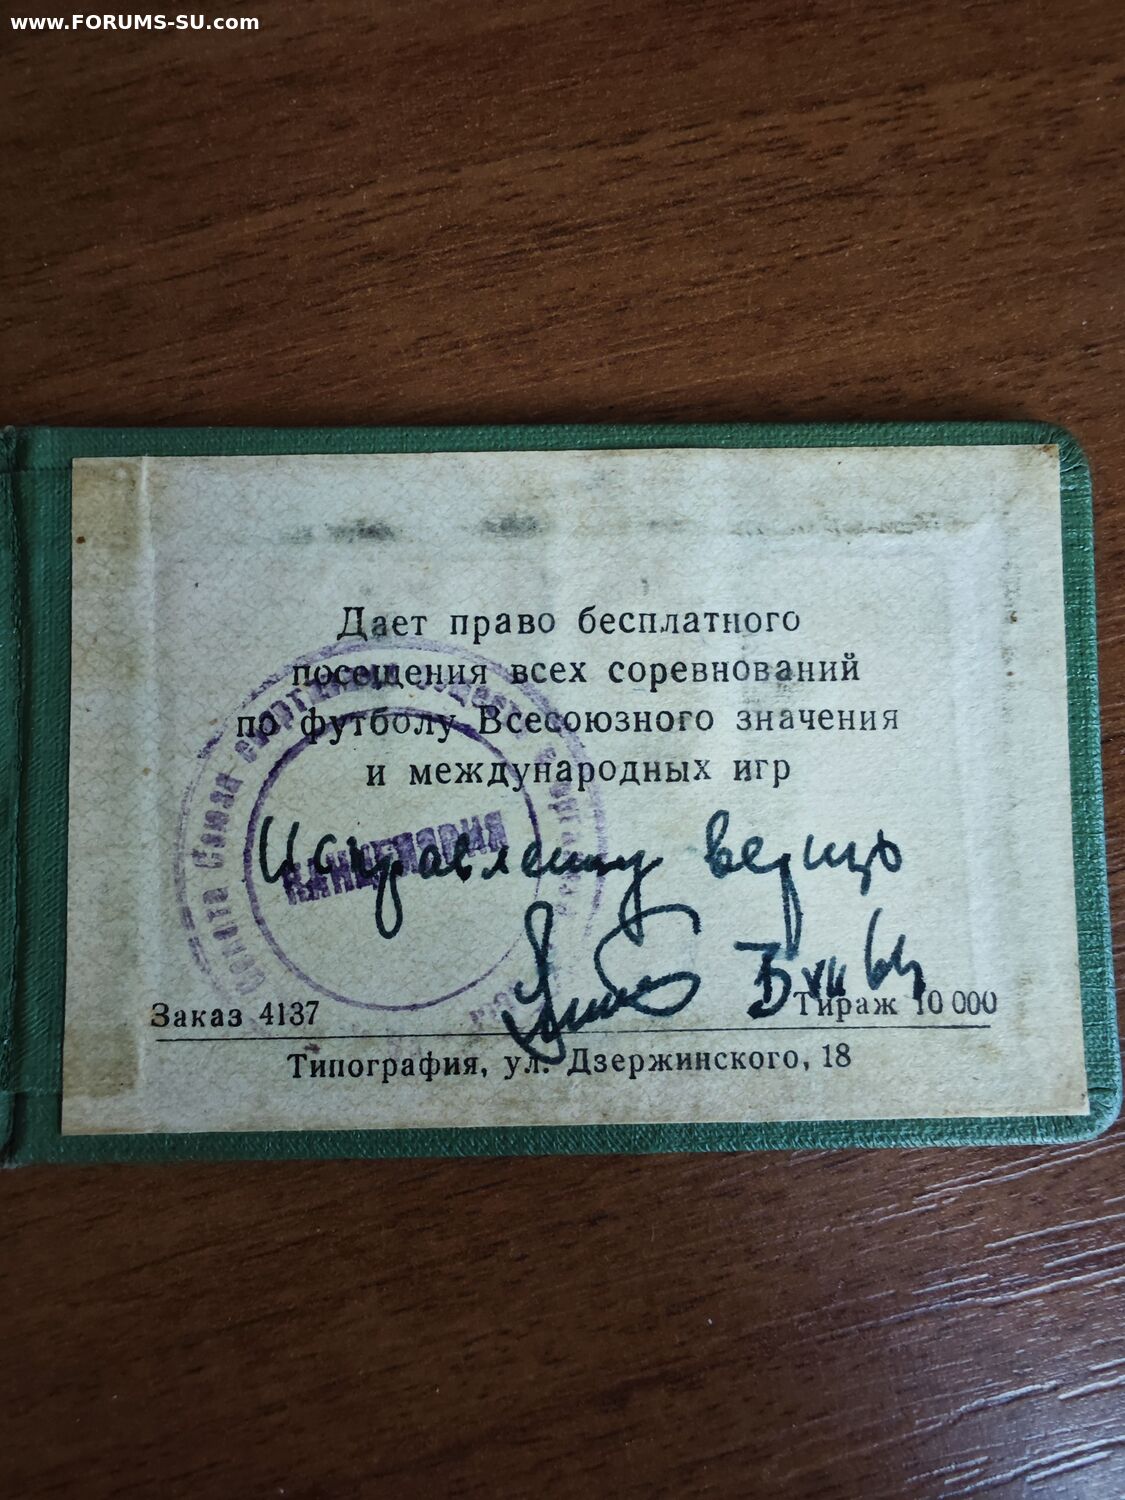 www.FORUMS-SU.com
Дает право бесплатного
посещения всех соревнований
по футболу Всесоюзного значения
и международных игр
КАНЦЕЛЯРИЯ
Совета Союза спорт
Исправленну верить
Заказ 4137
Тираж 10 000
Типография, ул. Дзержинского, 18